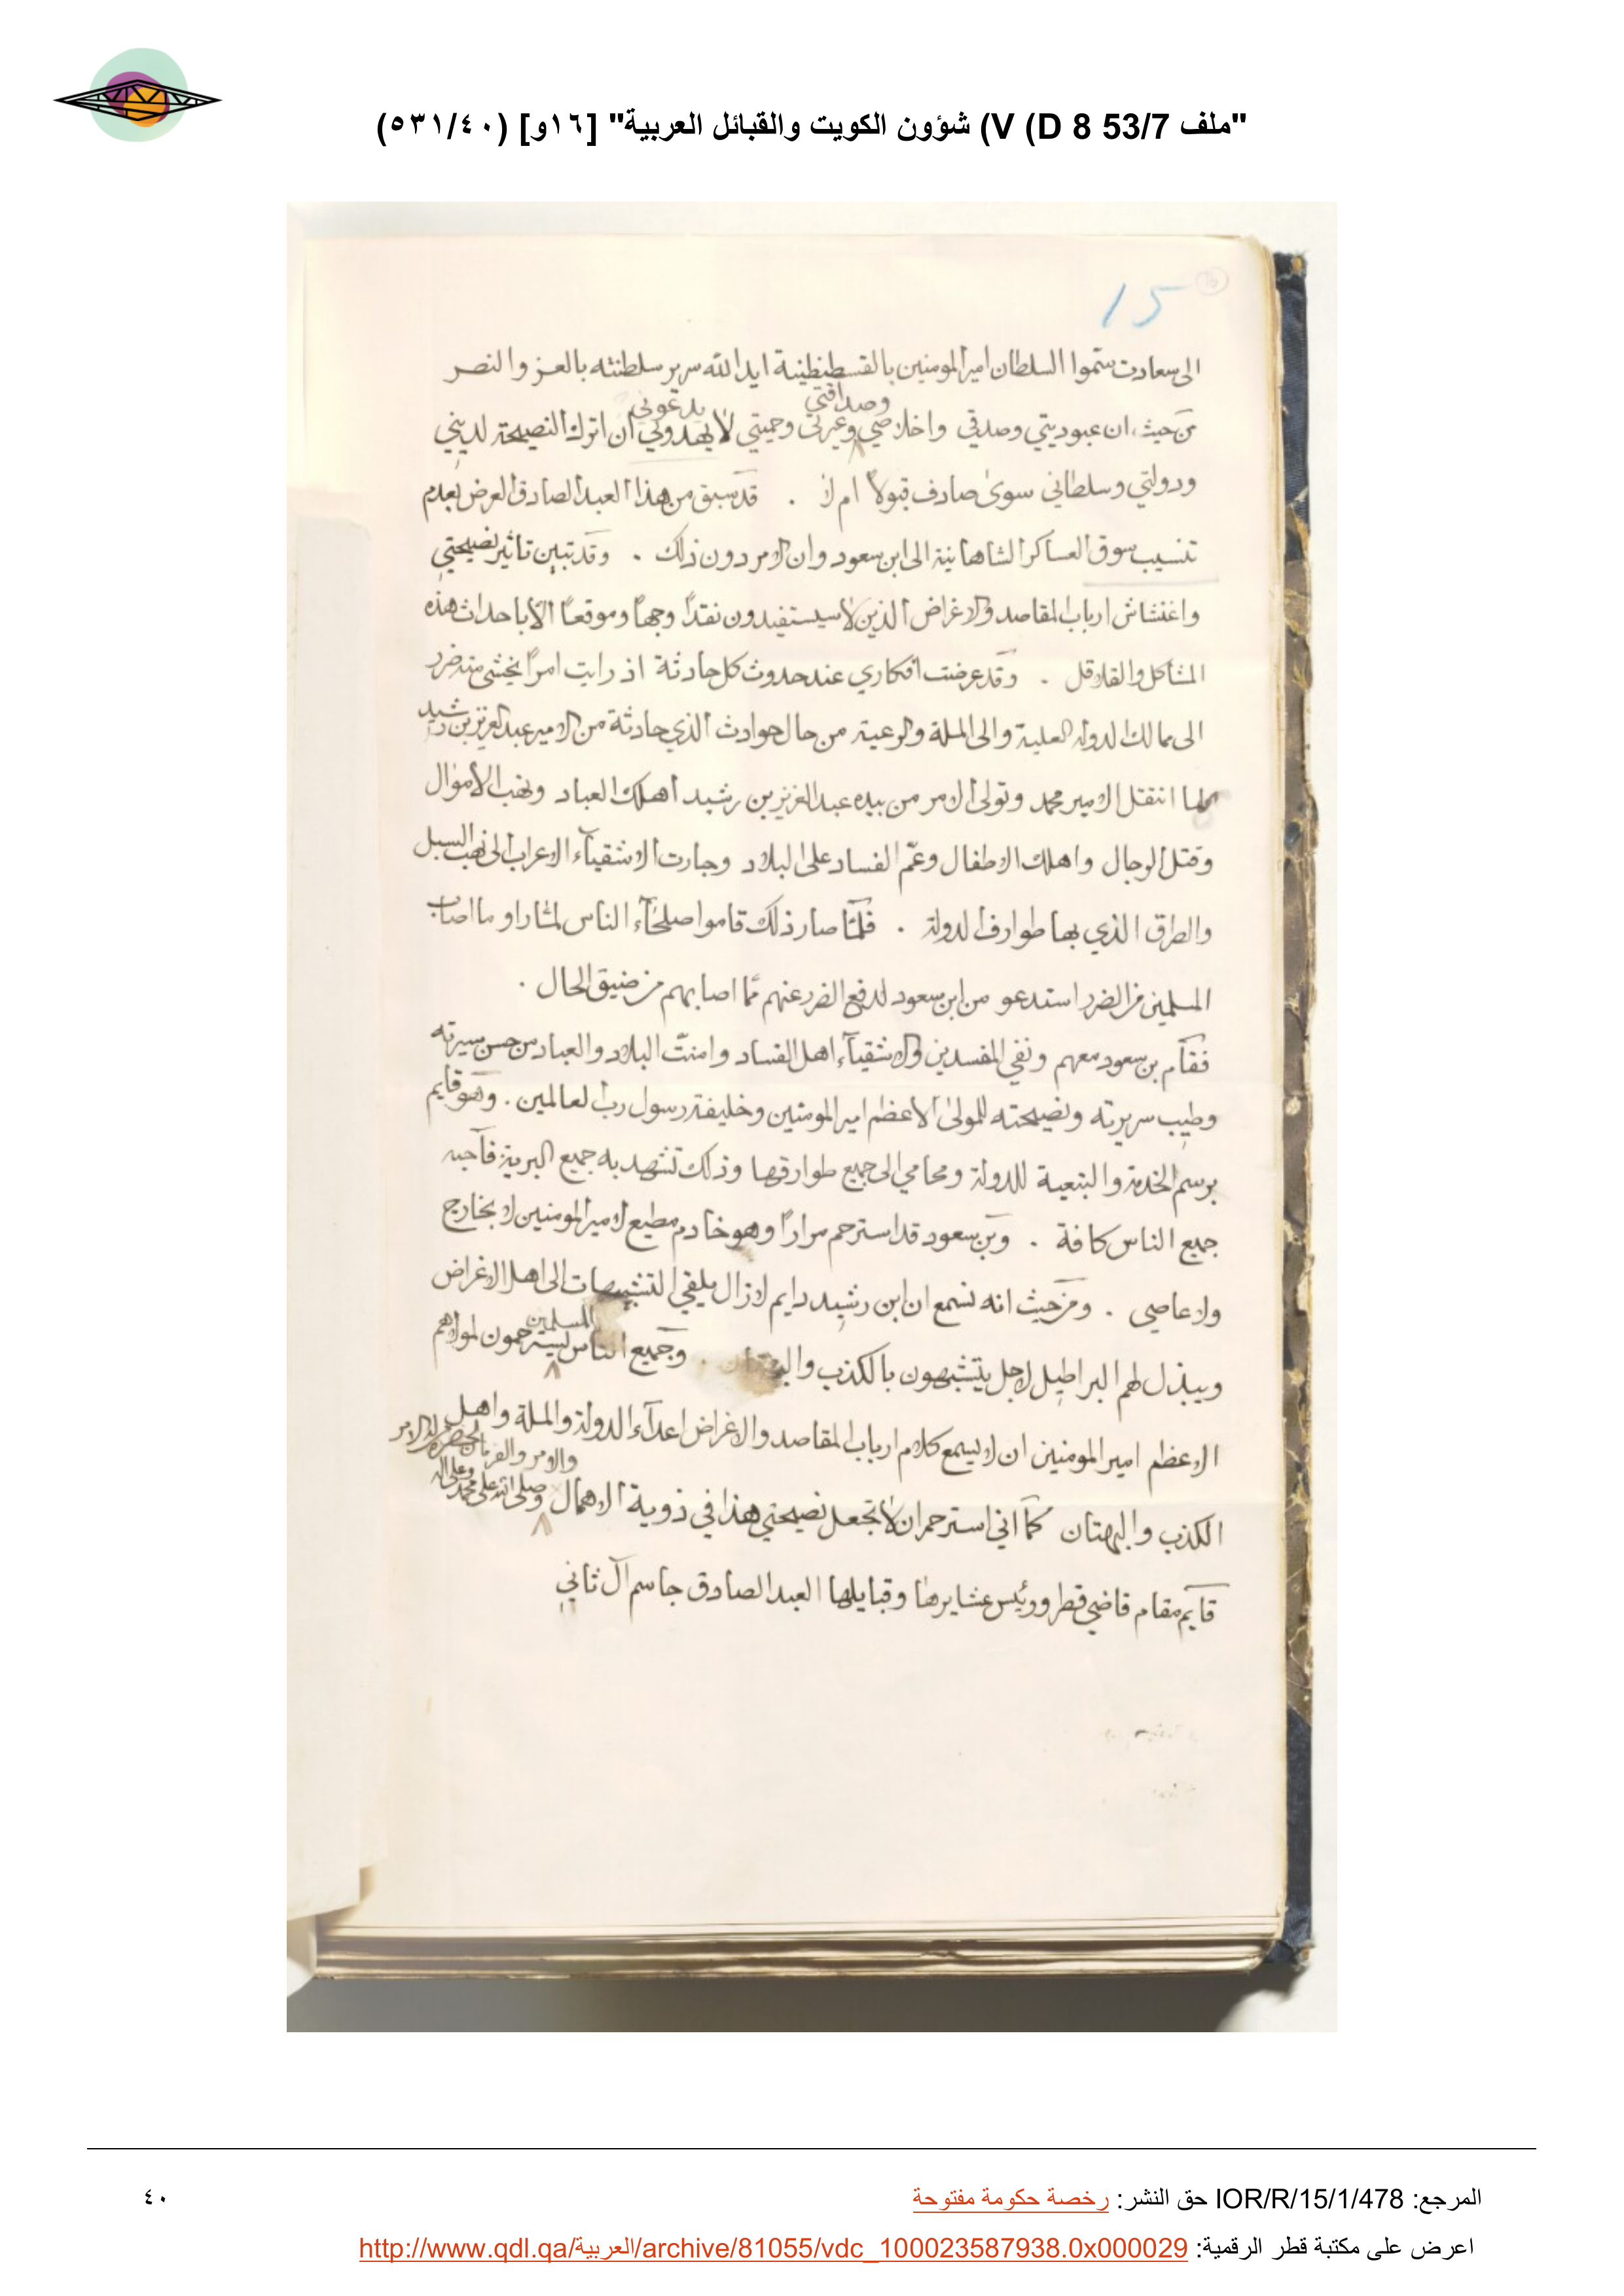 "ملف 53/7 V (D 8) شؤون الكويت والقبائل العربية" [١٦و] (٥٣١/٤٠)
15
الى سعادت ستموا السلطان امير المومنين بالقسطنطينية ايد الله سرير سلطنته بالعز والنصر
وصداقتي يدعوني
من حيث ان عبوديتي وصدقي واخلاصي وغيرتي وحميتي لا يهدوني ان اترك النصيحة لديني
ودولتي وسلطاني سوى صادف قبولا ام لا . قد سبق من هذا العبد الصادق العرض بعدم
تنسيب سوق العساكر الشاهانية الى ابن سعود وان الامر دون ذلك . وقد تبين تاثير نصيحتي
واغتشاش ارباب المقاصد والاغراض الذين لا سيستفيدون نقدًا وجهًا وموقعًا الا باحداث هذه
المشاكل والقلاقل . وقد عرضت افكاري عند حدوث كل حادثة اذ رايت امرًا يخشى منه ضرر
الى ممالك الدولة العلية والى الملة والرعية من حال حوادث الذي حادثة من الامير عبد العزيز بن رشيد
لما انتقل الامير محمد وتولى الامر من بيده عبد العزيز بن رشيد اهلك العباد ونهب الاموال
وقتل الرجال واهلك الاطفال وعمّ الفساد على البلاد وجارت الاشقياء الاعراب الى نهب السبل
والطرق الذي بها طوارف الدولة . فلمّا صار ذلك قاموا صلحآء الناس لمّا راو ما اصاب
المسلمين من الضرر استدعو من ابن سعود لدفع الضرر عنهم ممّا اصابهم من ضيق الحال .
فقام بن سعود معهم ونفي المفسدين والاشقيآء اهل الفساد وامنت البلاد والعباد من حسن سيرته
وطيب سريرته ونصيحته للمولى الاعظم امير المومنين وخليفة رسول رب العالمين . وهو قايم
برسم الخدمة والتبعية للدولة ومحامي الى جميع طوارقها وذلك تشهد به جميع البرية فآحبه
جميع الناس كافة . وبن سعود قد استرحم مرارًا وهو خادم مطيع لامير المومنين لا بخارج
ولا عاصي . ومن حيث انه نسمع ان ابن رشيد دايم لازال يلقي التشبيهات الى اهل الاغراض
المسلمين
ويبذل لهم البراطيل لاجل يتشبهون بالكذب والبهتان . وجميع الناس يسترحمون لمولاهم
الاعظم امير المومنين ان لا يسمع كلام ارباب المقاصد والاغراض اعدآء الدولة والملة واهل
والامر والفرمان لحضرة له الامر
الكذب والبهتان كما اني استرحم ان لا تجعل نصيحتي هذا في ذوية الاهمال وصلى الله على محمد وعلى اله
قايم مقام قاضي قطر ورئيس عشايرها وقبايلها العبد الصادق جاسم آل ثاني
المرجع: IOR/R/15/1/478 حق النشر: رخصة حكومة مفتوحة
٤٠
اعرض على مكتبة قطر الرقمية: http://www.qdl.qa/العربية/archive/81055/vdc_100023587938.0x000029